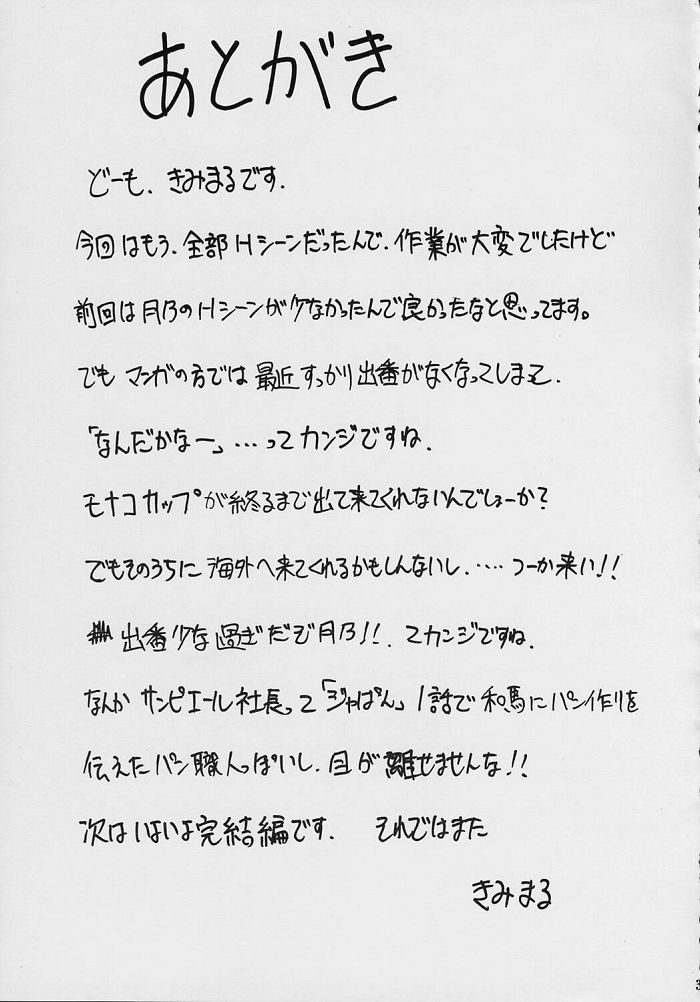 あとがき
どーも、きみまるです.
今回はもう、全部Hシーンだったんで、作業が大変でしたけど
前回は月乃のHシーンが少なかったんで良かったなと思ってます。
でもマンガの方では最近すっかり出番がなくなってしまって、
「なんだかなー」…ってカンジですね.
モナコカップが終るまで出て来てくれないんでしょーか?
でもそのうちに海外へ来てくれるかもしんないし.….つーか来い!!
出番少な過ぎだぞ月乃!!.てカンジですね.
なんかサンピエール社長って「ジャぱん」1話で和馬にパン作りを
伝えたパン職人っぽいし.目が離せませんな!!
次はいよいよ完結編です. それではまた
きみまる